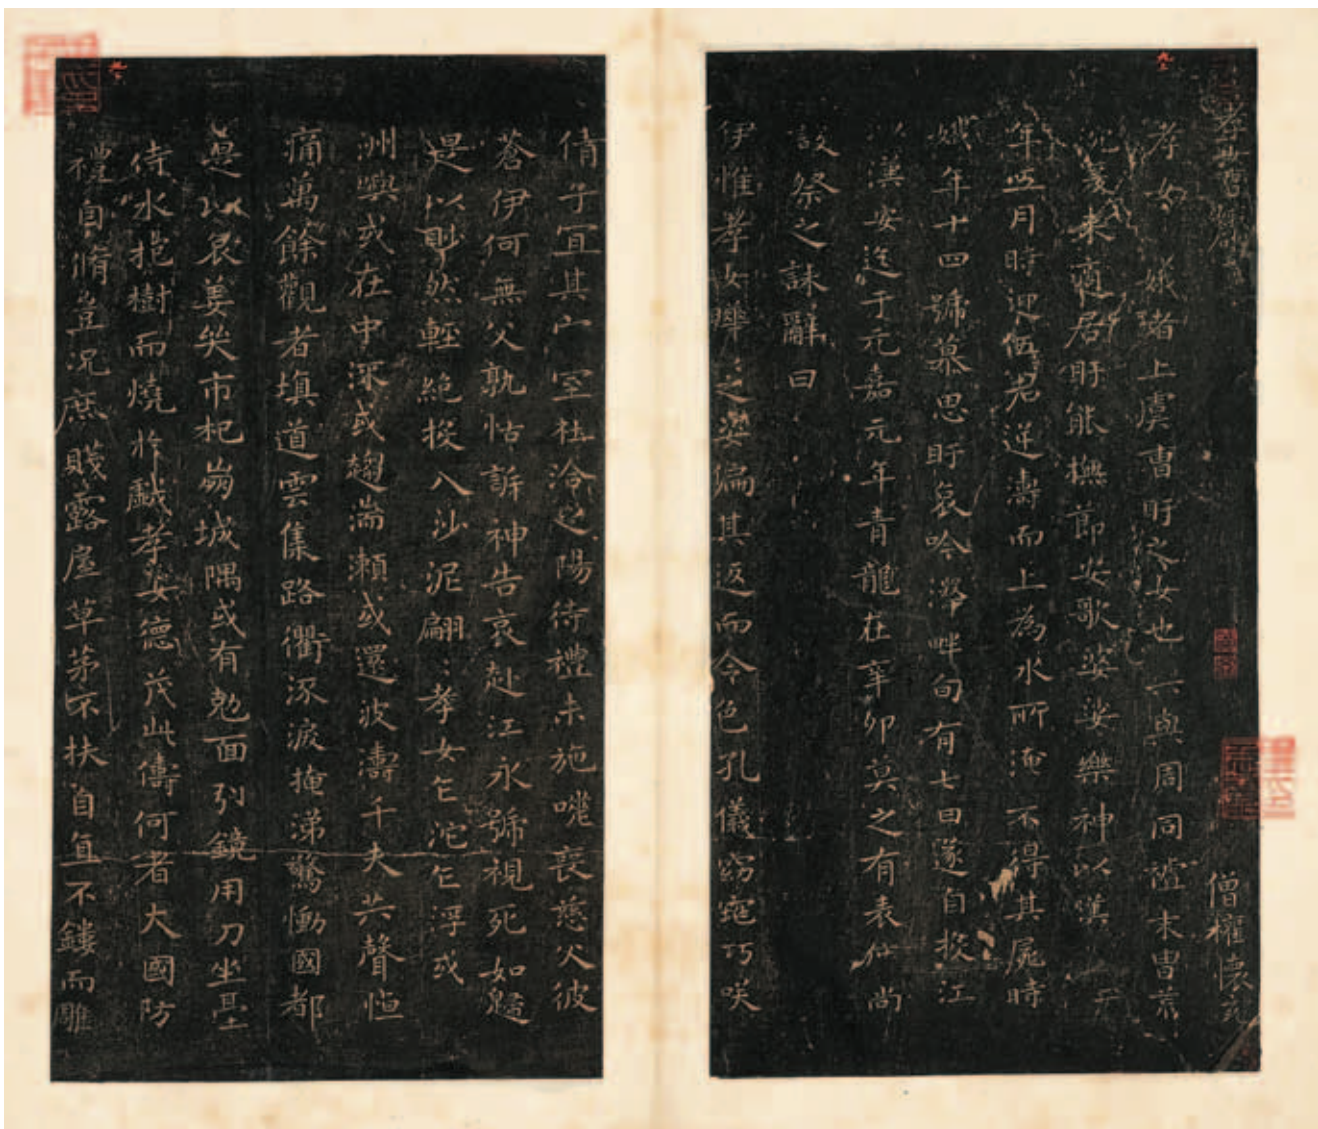 孝女曹娥碑
孝女曹娥者上虞曹盱之女也其先與周同祖末胄荒
沉爰来適居盱能撫節安歌婆娑樂神以漢安二
年五月時迎伍君逆濤而上為水所淹不得其屍時
娥年十四號慕思盱哀吟澤畔旬有七日遂自投江
死經五日抱父屍出
以漢安迄于元嘉元年青龍在辛卯莫之有表度尚
設祭之誄辭曰
伊惟孝女曄之姿偏其返而令色孔儀窈窕巧咲
倩子宜其家室在洽之陽待禮未施嗟喪慈父彼
蒼伊何無父孰怙訴神告哀赴江永號視死如歸
是以眇然輕絕投入沙泥翩孝女乍沉乍浮或
洲嶼或在中流或趨湍瀨或還波濤千夫失聲悼
痛萬餘觀者填道雲集路衢流淚掩涕驚慟國都
是以哀姜哭市杞崩城隅或有剋面引鏡用刀坐臺
待水抱樹而燒於戲孝女德茂此儔何者大國防
禮自脩豈況庶賤露屋草茅不扶自直不鏤而雕